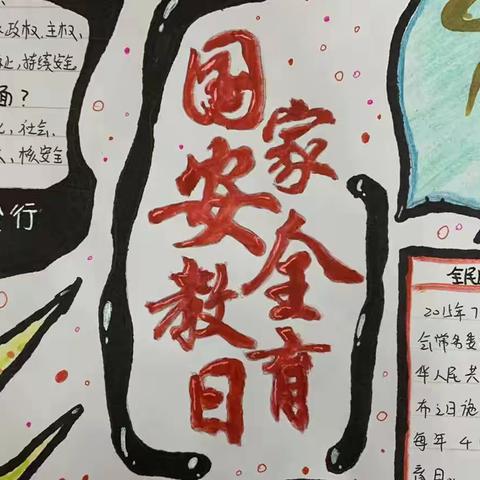 政权、主权、
持续安全
面？
社会、
核安全
行
国家
安全
教育
日
全民
2015年7
会常务委
华人民共
布之日施
每年4
育日